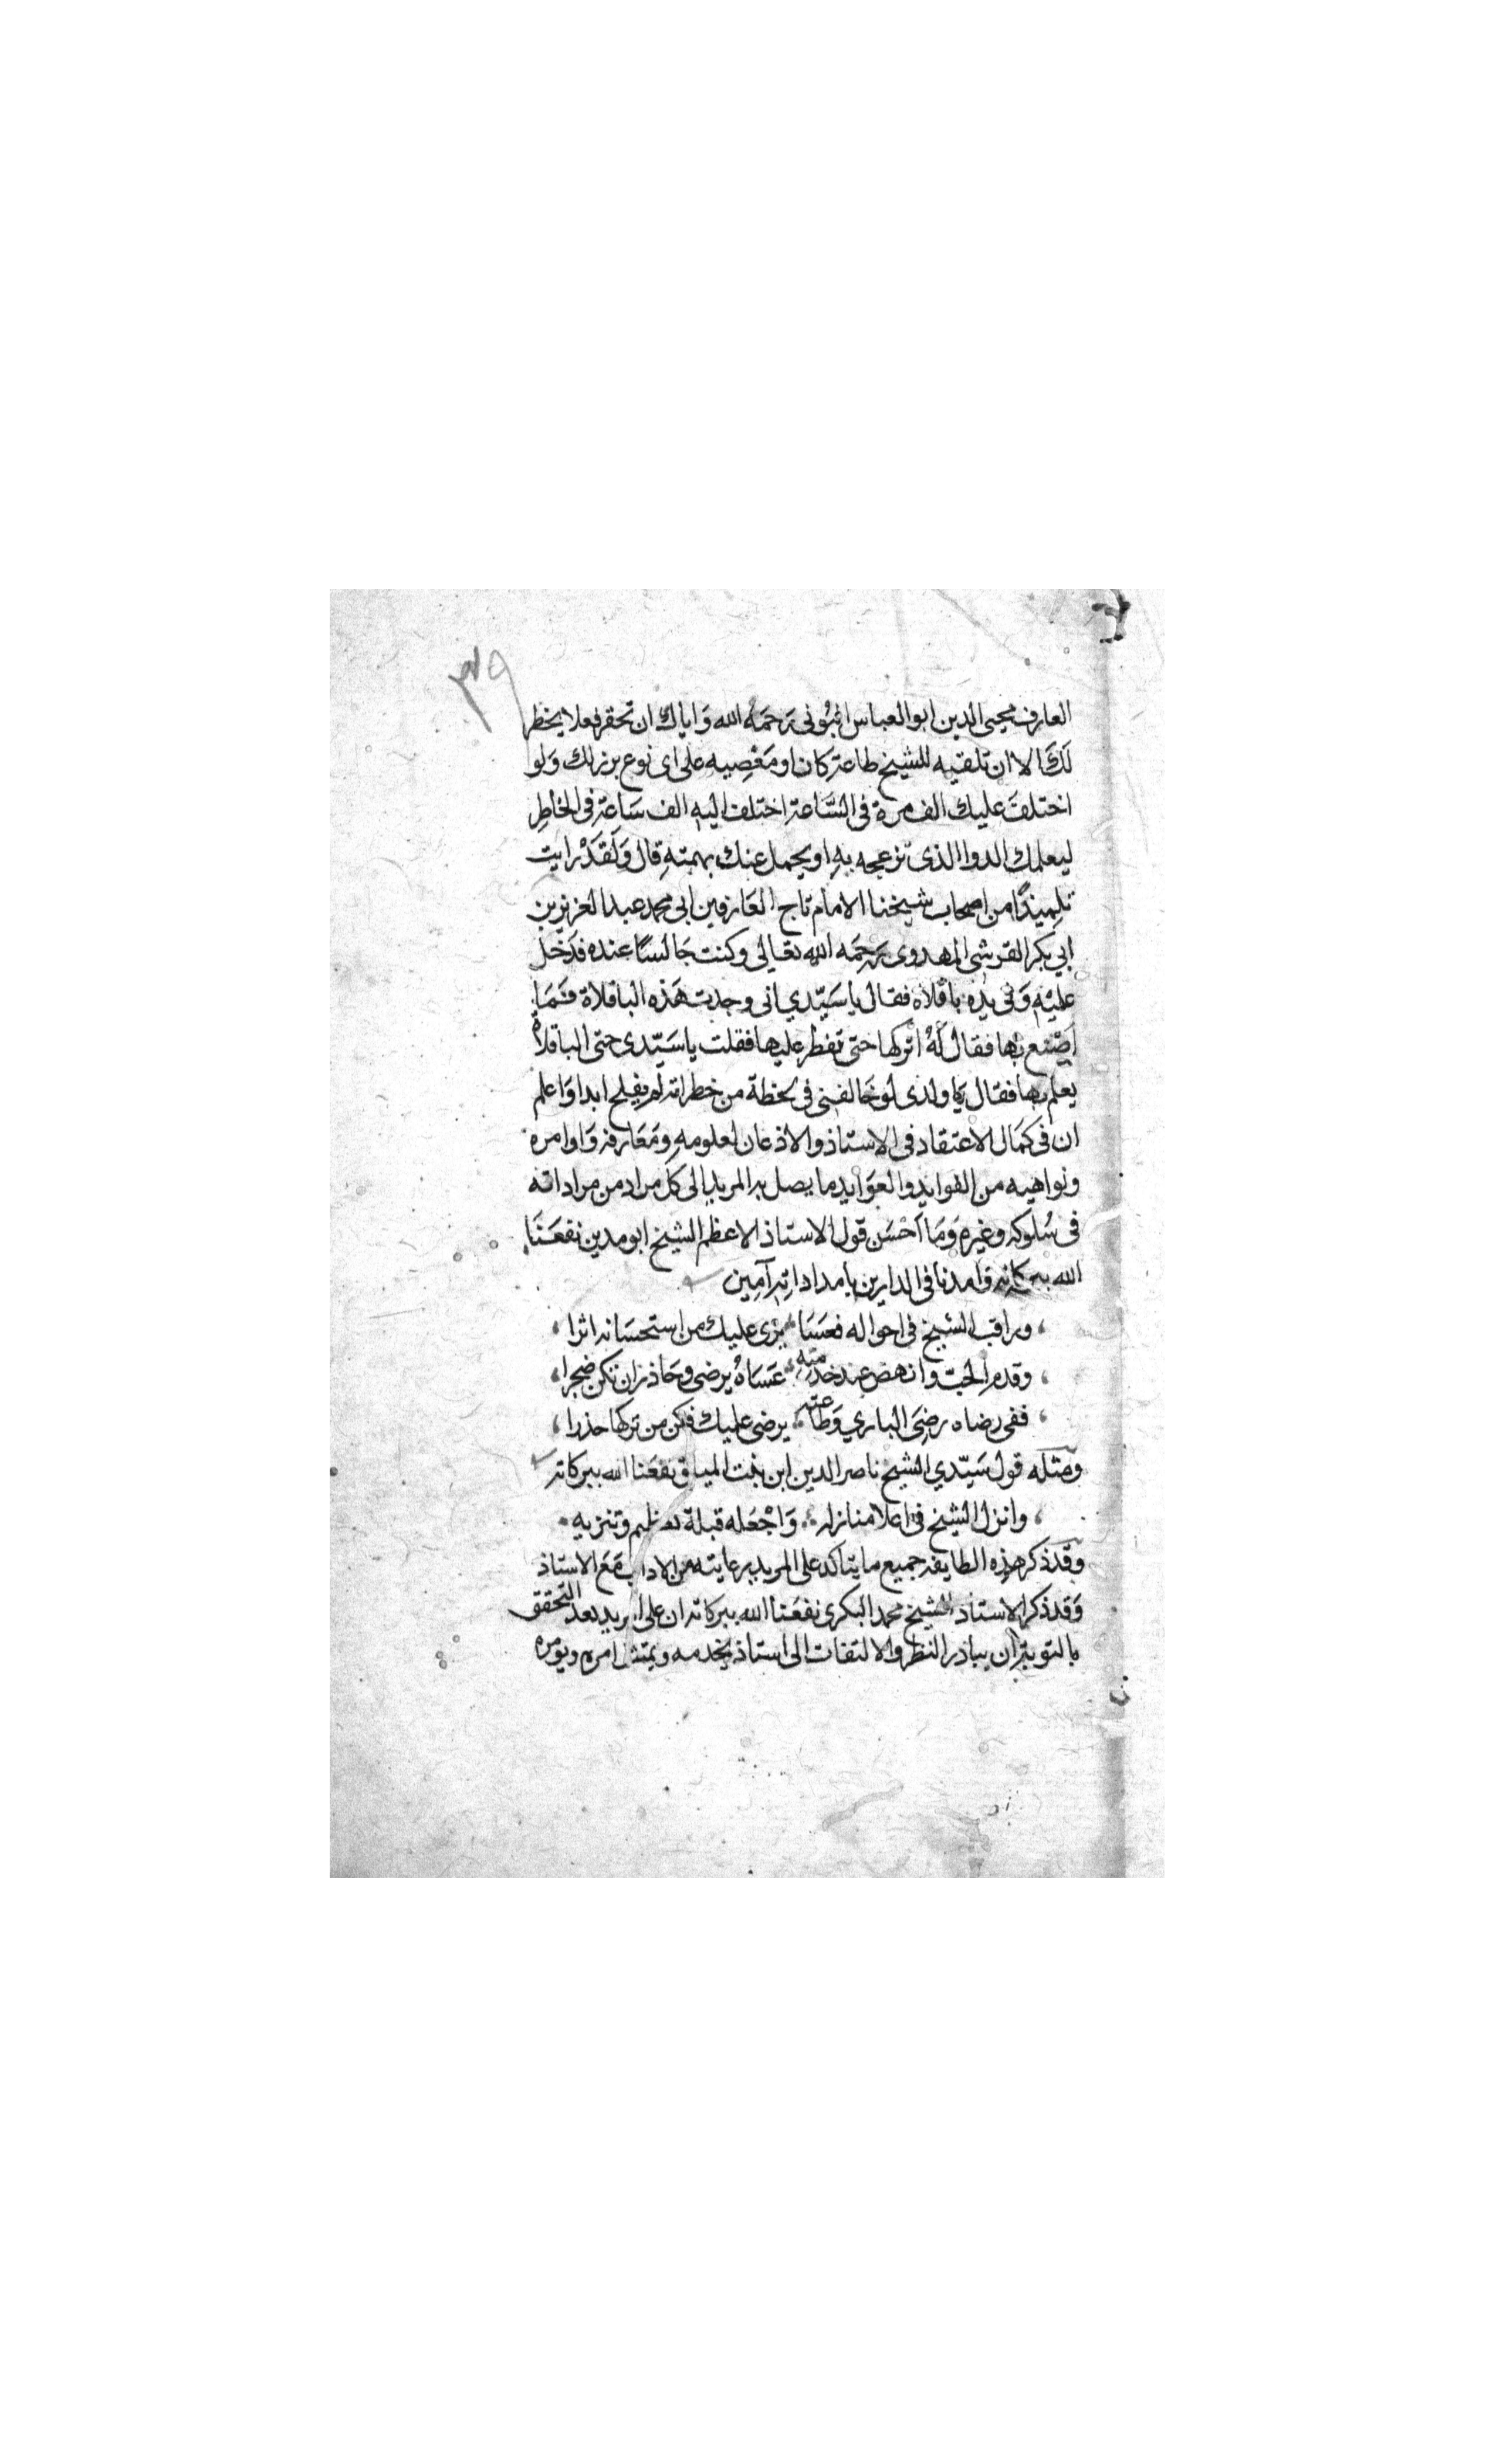 ٣٩
العارف محيى الدين ابو العباس البُونى رَحمَهُ الله وَاياك ان تحقر فعلا يخطر
لَكَ الا ان تلقيه للشيخ طاعة كان او مَعْصِيه على اى نوع برز لك وَلو
اختلفَ عليك الف مرة فى السَّاعة اختلف اليه الف سَاعة فى الخاطِر
ليعلمك الدوا الذى تزعجه بهِ او يحمل عنك بهمتهِ قال وَلَقَدْ رايت
تلِميذًا من اصحاب شيخنا الامام تاج العَارفين ابى محمد عبد العزيز بن
ابي بكر القرشى المهدوى رَحِمَه الله تعَالى وكنت جَالسًا عنده فدَخل
عليْهِ وَفى يدِه باقلاه فقال يا سَيّدي انى وجدت هَذه الباقلاة فَمَا
اَصْنع بها فقال لَهُ اتركها حتى تفطر عليها فقلت يا سَيّدى حتى الباقلاة
يعلم بها فقال يَا ولدى لو خَالفنى فى لحظة من خطراته لم يفلح ابدا وَاعلم
ان فى كمَال الاعتقاد فى الاستاذ والاذعان لعلومهِ ومَعَارفه وَاوامره
ونواهيه من الفوايد والعوَايد ما يصل به المريد الى كل مراد من مراداته
فى سُلوكه وغيره وَمَا اَحْسَن قول الاستاذ الاعظم الشيخ ابو مدين نفعَنَا
الله ببركاته وَامدنا فى الدارين بامداداتِه آمِين
وراقب الشيخ فى احواله فعَسَا يرَى عليك من استحسَانه اثرا
وقدم الجدّ وانهض عند خدمتِهِ عَسَاهُ يرضى وحَاذر ان تكن ضجرا
ففى رضاه رضِىَ الباري وَطاعته يرضى عليك فكن من تركها حذرا
وَمثله قول سَيّدي الشيخ ناصر الدين ابن بنت الميلق نفعَنا الله ببركاته
وانزل الشيخ فى اعلا منازله وَاجْعَله قبلة تعظيم وتنزيه
وَقد ذكر هذِه الطايفه جميع ما يتاكد على المريد رعايته من الاداب مَعَ الاستاذ
وَقد ذكر الاستاذ الشيخ محمد البكرى نفعَنا الله ببركاته ان على المريد بعد التحقق
بالتوبة ان يبادر النظر والالتفات الى استاذ يخدمه ويمتثل امره ويومره